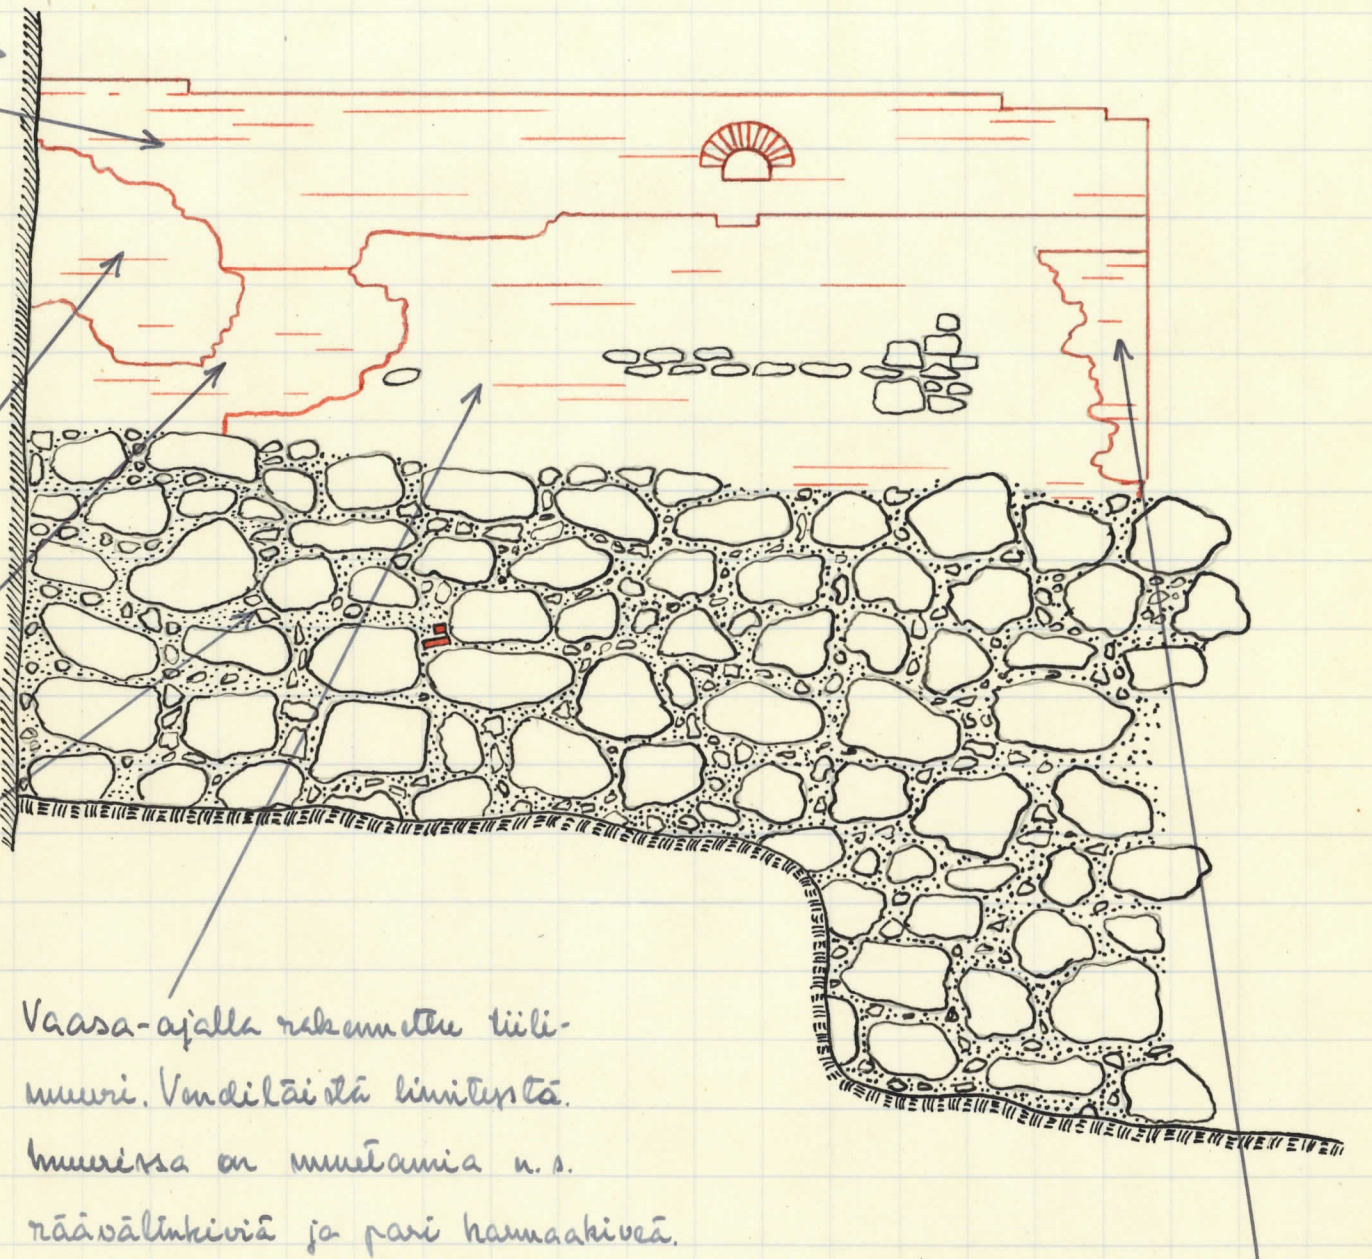 Vaasa-ajalla rakennettu tiili-
muuri. Vendiläistä limitystä.
Muurissa on muutamia n.s.
räävälinkiviä ja pari harmaakiveä.